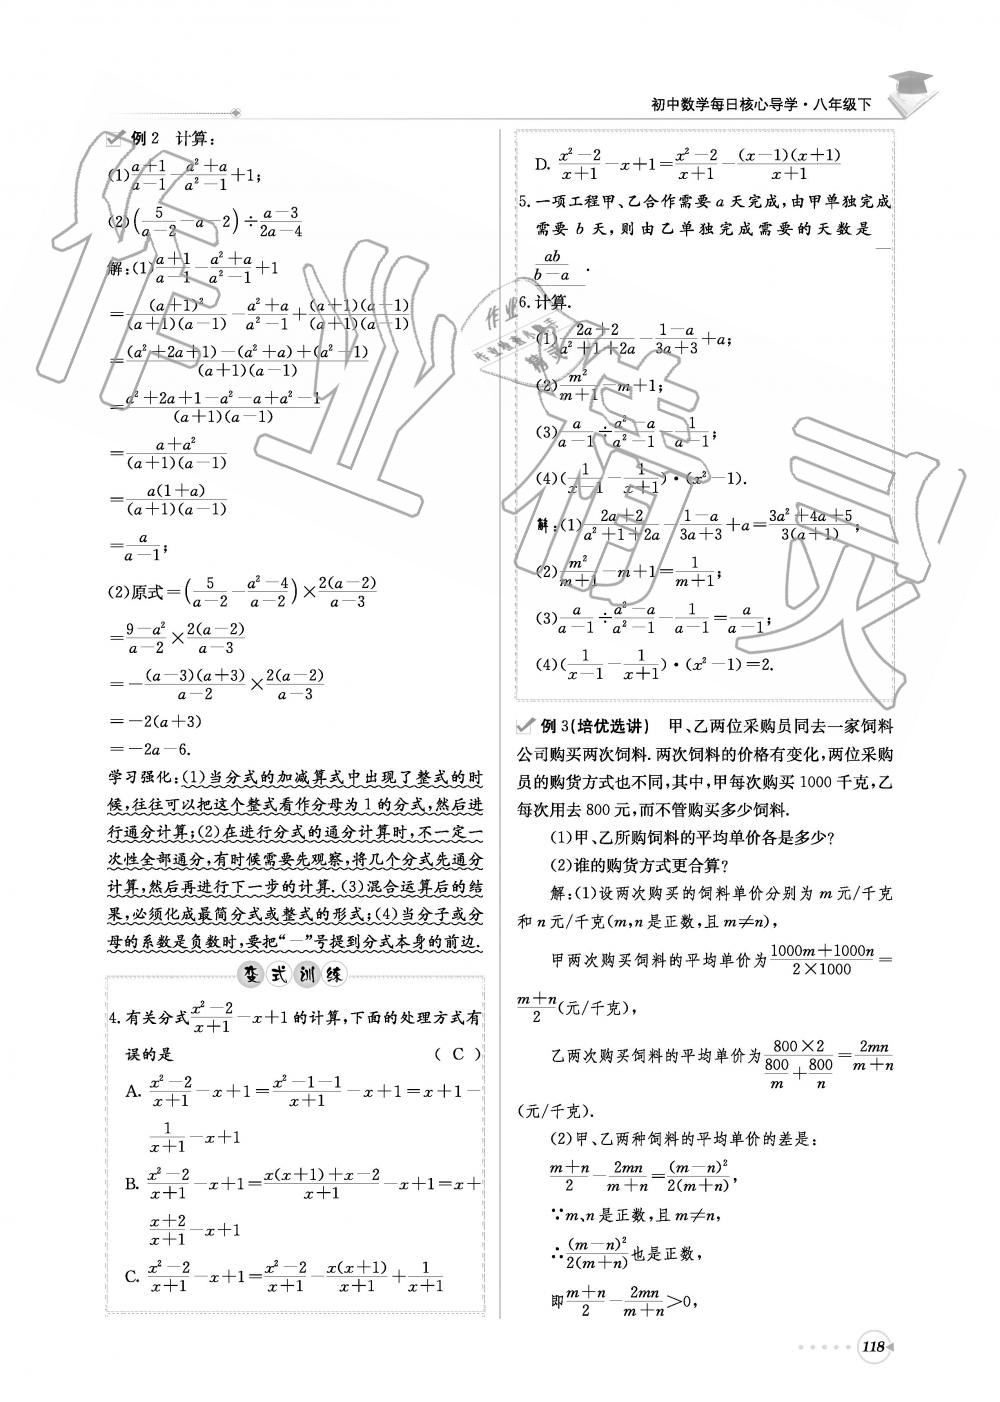 初中数学每日核心导学·八年级下
例2 计算：
(1) \frac{a+1}{a-1}-\frac{a^2+a}{a^2-1}+1;
(2) (\frac{5}{a-2}-a-2)÷\frac{a-3}{2a-4}
解:(1) \frac{a+1}{a-1}-\frac{a^2+a}{a^2-1}+1
=\frac{(a+1)^2}{(a+1)(a-1)}-\frac{a^2+a}{a^2-1}+\frac{(a+1)(a-1)}{(a+1)(a-1)}
=\frac{(a^2+2a+1)-(a^2+a)+(a^2-1)}{(a+1)(a-1)}
=\frac{a^2+2a+1-a^2-a+a^2-1}{(a+1)(a-1)}
=\frac{a+a^2}{(a+1)(a-1)}
=\frac{a(1+a)}{(a+1)(a-1)}
=\frac{a}{a-1};
(2)原式=(\frac{5}{a-2}-\frac{a^2-4}{a-2})×\frac{2(a-2)}{a-3}
=\frac{9-a^2}{a-2}×\frac{2(a-2)}{a-3}
=-\frac{(a-3)(a+3)}{a-2}×\frac{2(a-2)}{a-3}
=-2(a+3)
=-2a-6.
学习强化:(1)当分式的加减算式中出现了整式的时
候,往往可以把这个整式看作分母为1的分式,然后进
行通分计算;(2)在进行分式的通分计算时,不一定一
次性全部通分,有时候需要先观察,将几个分式先通分
计算,然后再进行下一步的计算.(3)混合运算后的结
果,必须化成最简分式或整式的形式;(4)当分子或分
母的系数是负数时,要把“－”号提到分式本身的前边.
变式训练
4.有关分式\frac{x^2-2}{x+1}-x+1的计算,下面的处理方式有
误的是 ( C )
A. \frac{x^2-2}{x+1}-x+1=\frac{x^2-1-1}{x+1}-x+1=x+1-
\frac{1}{x+1}-x+1
B. \frac{x^2-2}{x+1}-x+1=\frac{x(x+1)+x-2}{x+1}-x+1=x+
\frac{x+2}{x+1}-x+1
C. \frac{x^2-2}{x+1}-x+1=\frac{x^2-2}{x+1}-\frac{x(x+1)}{x+1}+\frac{1}{x+1}
D. \frac{x^2-2}{x+1}-x+1=\frac{x^2-2}{x+1}-\frac{(x-1)(x+1)}{x+1}
5.一项工程甲、乙合作需要a天完成,由甲单独完成
需要b天,则由乙单独完成需要的天数是
\frac{ab}{b-a}.
6.计算.
(1) \frac{2a+2}{a^2+1+2a}-\frac{1-a}{3a+3}+a;
(2) \frac{m^2}{m+1}-m+1;
(3) \frac{a}{a-1}÷\frac{a^2-a}{a^2-1}-\frac{1}{a-1};
(4)(\frac{1}{x-1}-\frac{1}{x+1})·(x^2-1).
解:(1) \frac{2a+2}{a^2+1+2a}-\frac{1-a}{3a+3}+a=\frac{3a^2+4a+5}{3(a+1)};
(2) \frac{m^2}{m+1}-m+1=\frac{1}{m+1};
(3) \frac{a}{a-1}÷\frac{a^2-a}{a^2-1}-\frac{1}{a-1}=\frac{a}{a-1};
(4)(\frac{1}{x-1}-\frac{1}{x+1})·(x^2-1)=2.
例3(培优选讲) 甲、乙两位采购员同去一家饲料
公司购买两次饲料.两次饲料的价格有变化,两位采购
员的购货方式也不同,其中,甲每次购买1000千克,乙
每次用去800元,而不管购买多少饲料.
(1)甲、乙所购饲料的平均单价各是多少?
(2)谁的购货方式更合算?
解:(1)设两次购买的饲料单价分别为m元/千克
和n元/千克(m,n是正数,且m≠n),
甲两次购买饲料的平均单价为\frac{1000m+1000n}{2×1000}=
\frac{m+n}{2}(元/千克),
乙两次购买饲料的平均单价为\frac{800×2}{\frac{800}{m}+\frac{800}{n}}=\frac{2mn}{m+n}
(元/千克).
(2)甲、乙两种饲料的平均单价的差是:
\frac{m+n}{2}-\frac{2mn}{m+n}=\frac{(m-n)^2}{2(m+n)},
∵m、n是正数,且m≠n,
∴\frac{(m-n)^2}{2(m+n)}也是正数,
即\frac{m+n}{2}-\frac{2mn}{m+n}>0,
118
作业精灵
作业
精灵